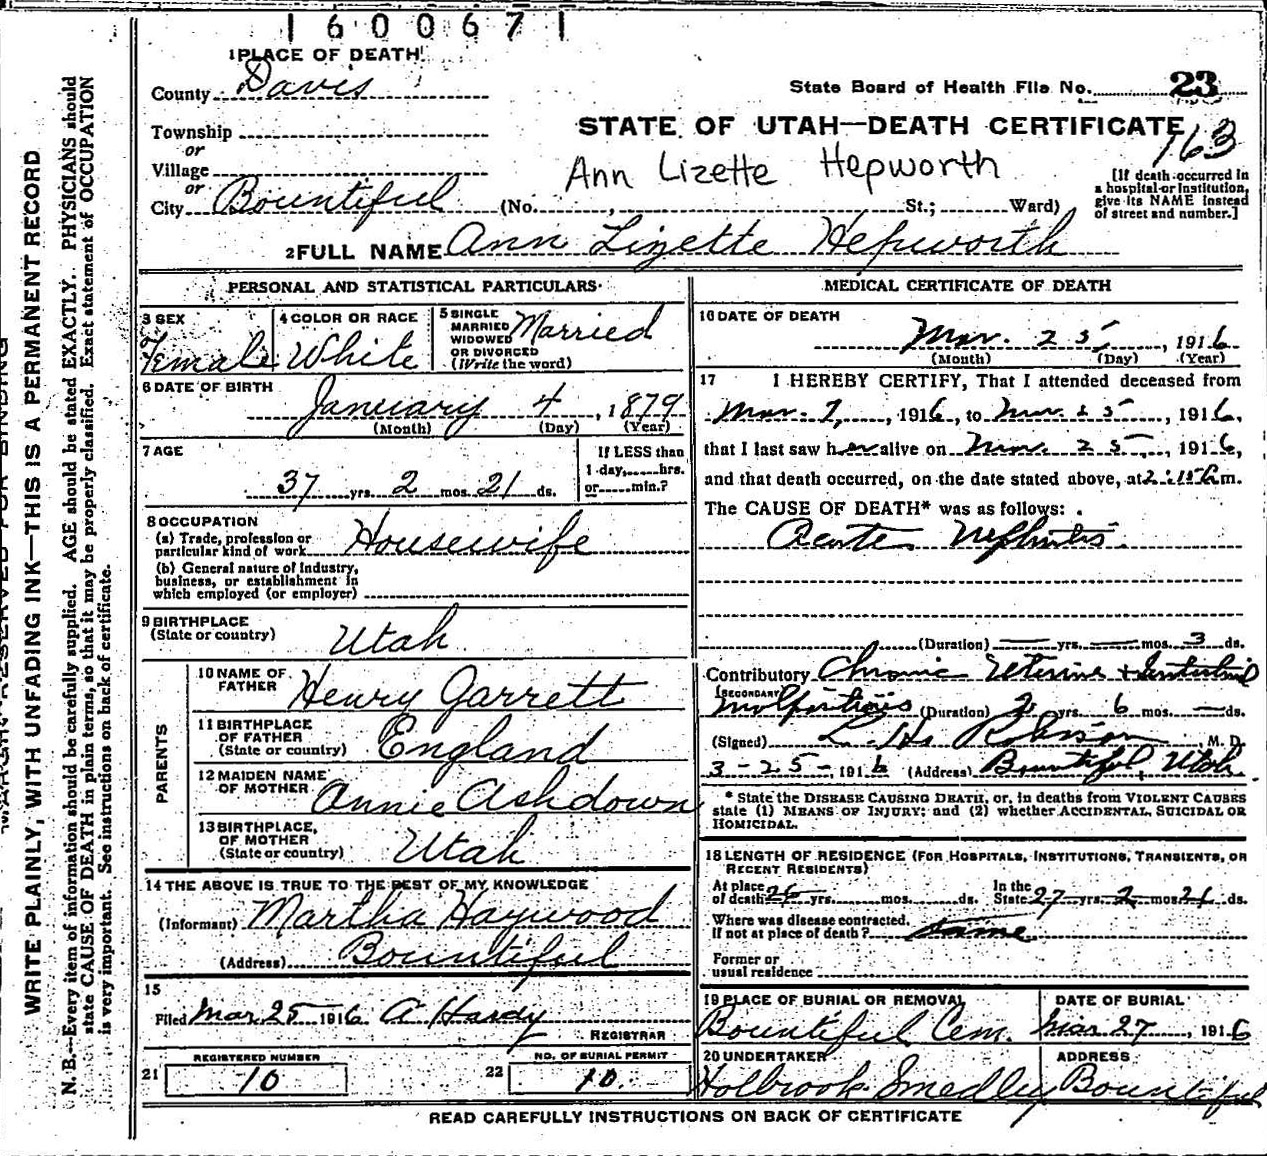 1600671
1 PLACE OF DEATH
County Davis
State Board of Health File No. 23
Township
STATE OF UTAH—DEATH CERTIFICATE
163
or
Village
Ann Lizette Hepworth
or
City Bountiful (No. , St.; Ward)
[If death occurred in
a hospital or institution,
give its NAME instead
of street and number.]
2 FULL NAME Ann Lizette Hepworth
PERSONAL AND STATISTICAL PARTICULARS
3 SEX
Female
4 COLOR OR RACE
White
5 SINGLE
MARRIED
WIDOWED
OR DIVORCED
(Write the word)
Married
6 DATE OF BIRTH
January 4, 1879
(Month) (Day) (Year)
7 AGE
37 yrs. 2 mos. 21 ds.
If LESS than
1 day, hrs.
or min.?
8 OCCUPATION
(a) Trade, profession or
particular kind of work Housewife
(b) General nature of Industry,
business, or establishment in
which employed (or employer)
9 BIRTHPLACE
(State or country) Utah
PARENTS
10 NAME OF
FATHER Henry Garrett
11 BIRTHPLACE
OF FATHER
(State or country) England
12 MAIDEN NAME
OF MOTHER Annie Ashdown
13 BIRTHPLACE,
OF MOTHER
(State or country) Utah
14 THE ABOVE IS TRUE TO THE BEST OF MY KNOWLEDGE
(Informant) Martha Haywood
(Address) Bountiful
15
Filed Mar 25 1916 A Hardy
REGISTRAR
REGISTERED NUMBER
21 10
NO. OF BURIAL PERMIT
22 10
MEDICAL CERTIFICATE OF DEATH
16 DATE OF DEATH
Mar. 25, 1916
(Month) (Day) (Year)
17 I HEREBY CERTIFY, That I attended deceased from
Mar. 7, 1916, to Mar. 25, 1916,
that I last saw her alive on Mar. 25, 1916,
and that death occurred, on the date stated above, at 2:15 m.
The CAUSE OF DEATH* was as follows:
Acute Nephritis
(Duration) yrs. mos. 3 ds.
Contributory Chronic Uterine + Intestinal
(SECONDARY) (Duration) 2 yrs. 6 mos. ds.
(Signed) L. H. Robinson M. D.
3-25-, 1916 (Address) Bountiful, Utah
* State the DISEASE CAUSING DEATH, or, in deaths from VIOLENT CAUSES
state (1) MEANS OF INJURY; and (2) whether ACCIDENTAL, SUICIDAL OR
HOMICIDAL.
18 LENGTH OF RESIDENCE (FOR HOSPITALS, INSTITUTIONS, TRANSIENTS, OR
RECENT RESIDENTS)
At place
of death 26 yrs. mos. ds.
In the
State 37 yrs. 2 mos. 21 ds.
Where was disease contracted,
If not at place of death? Same
Former or
usual residence
19 PLACE OF BURIAL OR REMOVAL
Bountiful Cem.
DATE OF BURIAL
Mar 27, 1916
20 UNDERTAKER
Holbrook Smedley
ADDRESS
Bountiful
READ CAREFULLY INSTRUCTIONS ON BACK OF CERTIFICATE
WRITE PLAINLY, WITH UNFADING INK—THIS IS A PERMANENT RECORD
N. B.—Every item of information should be carefully supplied. AGE should be stated EXACTLY. PHYSICIANS should
state CAUSE OF DEATH in plain terms, so that it may be properly classified. Exact statement of OCCUPATION
is very important. See instructions on back of certificate.